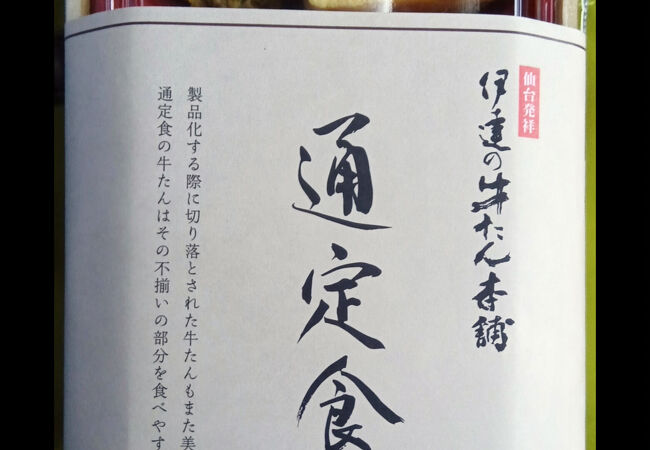 仙台発祥
伊達の牛たん本舗
通定食
製品化する際に切り落とされた牛たんもまた美
通定食の牛たんはその不揃いの部分を食べやす